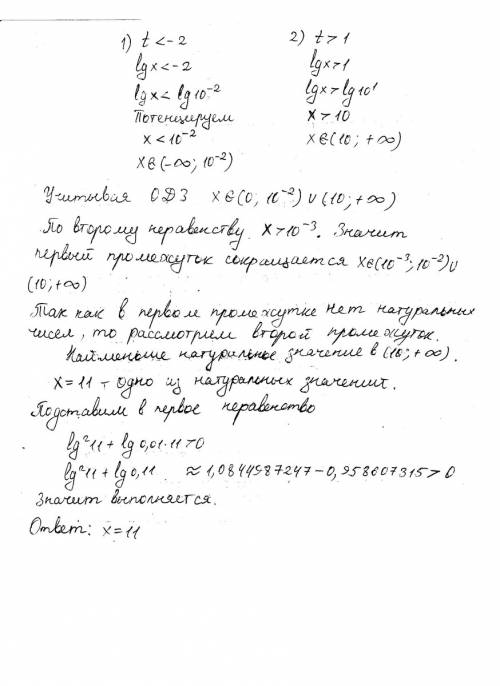 1) t < -2
lg x < -2
lg x < lg 10⁻²
Потенцируем
x < 10⁻²
x∈(-∞; 10⁻²)
2) t > 1
lg x > 1
lg x > lg 10¹
x > 10
x∈(10; +∞)
Учитывая ОДЗ x∈(0; 10⁻²)∪(10; +∞)
По второму неравенству x > 10⁻³. Значит
первый промежуток сокращается x∈(10⁻³; 10⁻²)∪
(10; +∞)
Так как в первом промежутке нет натуральных
чисел, то рассмотрим второй промежуток.
Наименьше натуральное значение в (10; +∞).
x = 11 - одно из натуральных значений.
Подставим в первое неравенство
lg²11 + lg 0,01·11 > 0
lg²11 + lg 0,11 ≈ 1,0844987247 - 0,958607315 > 0
Значит выполняется.
Ответ: x = 11